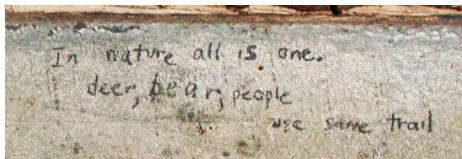 In nature all is one.
deer, bear, people
use same trail